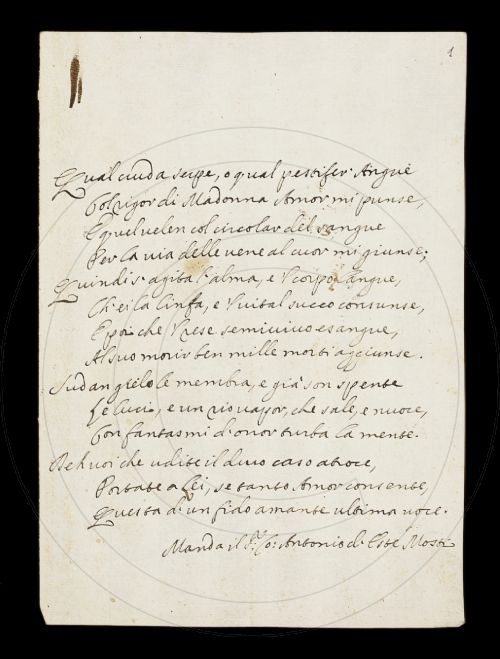 1
Qual cruda serpe, o qual pestifer Angue
Col rigor di Madonna Amor mi punse,
E quel velen col circolar del sangue
Per la via delle vene al cuor mi giunse;
Quindi s'agita l'alma, e 'l corpo langue,
Ch'ei la linfa, e 'l vital succo consunse,
E poi che 'l rese semivivo esangue,
Al suo morir ben mille morti aggiunse.
Sudan gielo le membra, e già son spente
Le luci, e un rio vapor, che sale, e nuoce,
Con fantasmi d'orror turba la mente.
Deh voi che udite il duro caso atroce,
Portate a Lei, se tanto Amor consente,
Questa d'un fido amante ultima voce.
Manda il Sr. Co: Antonio d'Este Mosti